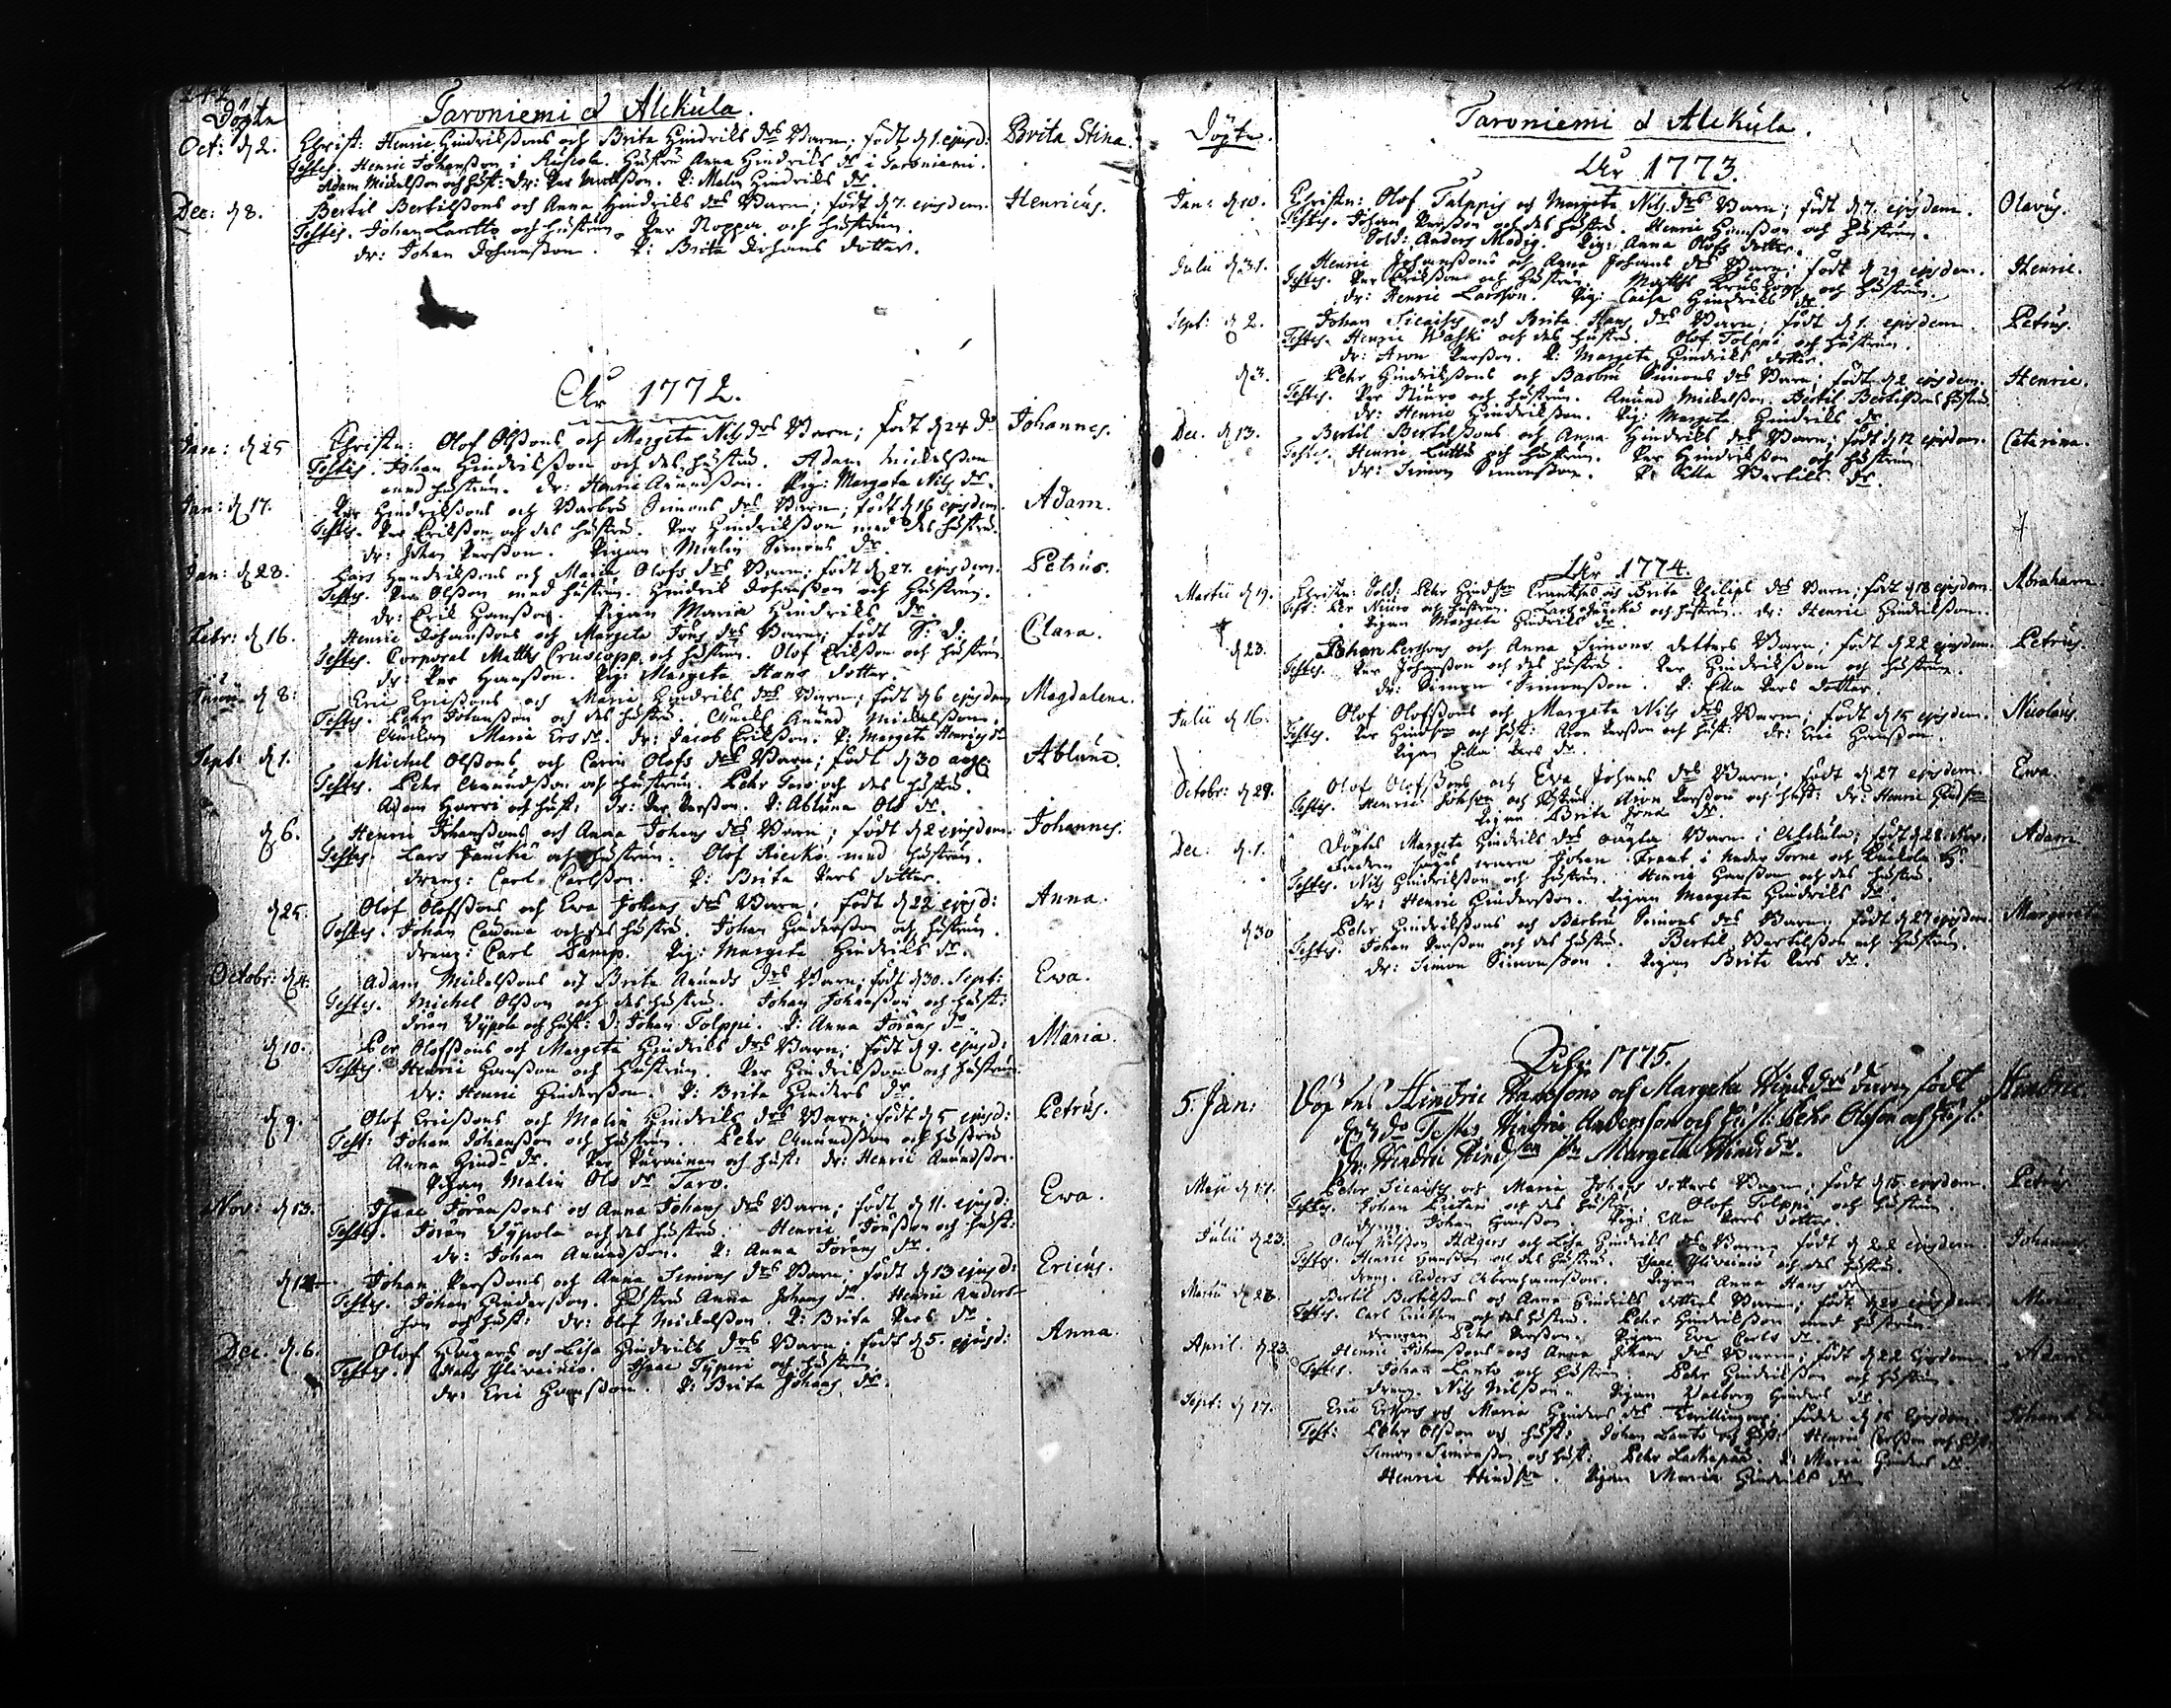 Döpte
Taroniemi & Alckula.
Oct: d 2. Christ: Henric Hindrikssons och Brita Hindriks drs Barn; född d 1. ejusd: Brita Stina.
Testes. Henric Johansson i Hustru Anna Hindriks dr i Taroniemi.
Adam Mickelsson och hust: dr: Per P: Malin Hindriks dr.
Dec: d 8. Bertil Bertilssons och Anna Hindriks drs Barn; född d 7. ejusdem. Henricus.
Testes. Johan Lantto och hustrun. Per Noppa och hustrun.
dr: Johan Johansson. P: Brita Johans dotter.
År 1772.
Jan: d 25 Christn: Olof Olssons och Margeta Nils drs Barn; född d 24 do Johannes.
Testes. Johan Hindriksson och des hustru. Adam Mickelsson
med hustrun. dr: Henric Amundsson. Pig: Margeta Nils dr.
Jan: d 17. Per Hindrikssons och Barbru Simons drs Barn; född d 16 ejusdem. Adam.
Testes. Per Eriksson och des hustru. Per Hindriksson med des hustru.
dr: Johan Persson. Pigan Malin Simons dr.
Jan: d 28. Hans Hindrikssons och Maria Olofs drs Barn; född d 27. ejusdem. Petrus.
Testes. Per Olsson med hustrun. Hindrik Johansson och hustrun.
dr: Erik Hansson. Pigan Maria Hindriks dr.
Febr: d 16. Henric Johanssons och Margeta Jöns drs Barn; född S: D: Clara.
Testes. Corporal Matths Cruscopp och hustrun. Olof Eriksson och hustrun
dr: Per Hansson. Pig: Margeta Hans dotter.
Junii d 8: Eric Ericssons och Maria Hindriks drs Barn; född d 6 ejusdem Magdalena.
Testes. Pehr Johansson och des hustru. Amund Mickelsson.
Maria Ers dr. dr: Jacob Eriksson. P: Margeta Henrics dr
Sept: d 1. Michel Olssons och Carin Olofs drs Barn; född d 30 aug: Ablune.
Testes. Pehr Amundsson och hustrun. Pehr Taro och des hustru.
Adam Harri och hust: dr: Per Persson. P: Abluna Ols dr.
d 6. Henric Johanssons och Anna Johans drs Barn; född d 2 ejusdem. Johannes.
Testes. Lars Jaucku och hustrun. Olof Riecko med hustrun.
dreng: Carl Carlsson. P: Brita Pers dotter.
d 25 Olof Olofssons och Eva Johans drs Barn; född d 22 ejusd: Anna.
Testes. Johan och des hustru. Johan Hindersson och hustrun.
dreng: Carl Damp. Pig: Margeta Hindriks dr.
Octobr: d 4. Adam Mickelssons och Brita Amunds drs Barn; född d 30. Sept: Ewa.
Testes. Michel Olsson och des hustru. Johan Johansson och hust:
Jöran Vypola och hust: D: Johan Tolppi. P: Anna Jörans dr
d 10. Per Olofssons och Margeta Hindriks drs Barn; född d 9. ejusd: Maria.
Testes. Henric Hansson och hustrun. Per Hindriksson och hustrun:
dr: Henric Hindersson. P: Brita Hinders dr.
d 9. Olof Ericssons och Malin Hindriks drs Barn; född d 5 ejusd: Petrus.
Test: Johan Johansson och hustrun. Pehr Amundsson och hustru
Anna Hinds dr. Per Purainen och hust: dr: Henric Amundsson.
Pigan Malin Ols dr Taro.
Nov: d 13. Isaac Jöranssons och Anna Johans drs Barn; född d 11. ejusd: Ewa.
Testes. Jöran Vypola och des hustru. Henric Jönsson och hust:
dr: Johan Amundsson. P: Anna Jörans dr.
d 14 Johan Perssons och Anna Simons drs Barn; född d 13 ejusd: Ericus.
Testes. Johan Hindersson. Hustru Anna Johans dr. Henric Anders-
son och hust: dr: Olof Mickelsson. P: Brita Pers dr.
Dec. d. 6. Olof Hägars och Lisa Hindriks drs Barn; född d 5. ejusd: Anna.
Testes. Mats Ylivainio. Isaac Typpri och hustrun.
dr: Eric Hansson. P: Brita Johans dr.
Döpte.
Taroniemi & Alckula.
År 1773.
Jan: d 10. Christn: Olof Talppis och Margeta Nils drs Barn; född d 7. ejusdem. Olavus.
Testes. Johan Persson och des hustru. Henric Hansson och hustrun.
Sold: Anders Modig. Pig: Anna Olofs dotter.
Julii d 31. Henric Johanssons och Anna Johans drs Barn; född d 29 ejusdem. Henric.
Testes. Per Eriksson och hustrun. Matths Cruskopp och hustrun.
dr: Henric Larsson. Pig: Caisa Hindriks dr.
Sept: d 2. Johan Sicaises och Brita Hans drs Barn; född d 1. ejusdem Petrus.
Testes. Henric Waski och des hustru. Olof Tolppi och hustrun.
dr: Aron Persson. P: Margeta Hindriks dotter.
d 3. Pehr Hindrikssons och Barbru Simons drs Barn; född d 2 ejusdem. Henric.
Testes. Per Niuro och hustrun. Amund Mickelsson. Bertil Bertilssons hustru
dr: Henric Hindriksson. Pig: Margeta Hindriks dr.
Dec. d 13. Bertil Bertilssons och Anna Hindriks drs Barn; född d 12 ejusdem. Catarina.
Testes. Henric Luttu och hustrun. Per Hindriksson och hustrun
dr: Simon Simonsson. P: Ella Bertils dr.
År 1774.
Martii d 19. Christn: Sold: Pehr Hindson och Brita Philips drs Barn; född d 18 ejusdem. Abraham.
Test: Per Niuro och hustrun. Lars Jaucku och hustrun. dr: Henric Hindriksson.
Pigan Margeta Hindriks dr.
d 23. Johan Perssons och Anna Simons dotters Barn; född d 22 ejusdem. Petrus.
Testes. Per Johansson och des hustru. Per Hindriksson och hustrun
dr: Simon Simonsson. P: Ella Pers dotter.
Julii d 16. Olof Olofssons och Margeta Nils drs Barn; född d 15 ejusdem. Nicolaus.
Testes. Per Hindson och hust: Aron Persson och hust: dr: Eric Hansson.
Pigan Ella Pers dr.
Octobr: d 29. Olof Olofssons och Ewa Johans drs Barn; född d 27 ejusdem. Ewa.
Testes. Henric Johsson och hustrun. Aron Persson och hust: dr: Henric Hindson
Pigan Brita Jöns dr.
Dec: d. 1. Döptes Margeta Hindriks drs oägta Barn i Alckula; född d 28 Nov: Adam.
Fadren säges wara Johan Frant i Neder Torne och Kuckola By.
Testes. Nils Hindriksson och hustrun. Henric Hansson och des hustru.
dr: Henric Hindersson. Pigan Margeta Hindriks dr.
d 30 Pehr Hindrikssons och Barbru Simons drs Barn; född d 27 ejusdem. Margareta
Testes. Johan Persson och des hustru. Bertil Bertilsson och hustrun.
dr: Simon Simonsson. Pigan Brita Pers dr.
1775.
5. Jan: Döptes Hindric Hanssons och Margeta Hind: drs barn född Hindric.
d 3 do Testes Hindric Andersson och hust: Pehr Olsson och hust:
Dr: Hindric Hindson Pn Margeta Hind: dr.
Maji d 17. Pehr Sicaises och Maria Johans dotters Barn; född d 15. ejusdem. Petrus
Testes. Johan och des hustru. Olof Tolppi och hustrun.
dreng. Johan Hansson. Pig: Ella Pers dotter.
Julii d 23. Olof Nilsson Hägers och Lisa Hindriks drs Barn; född d 22 ejusdem. Johannes
Testes. Henric Hansson och des hustru. Isaac Ylivainio och des hustru.
dreng. Anders Abrahamsson. Pigan Anna Hans dr
Martii d 28. Bertil Bertilssons och Anna Hindriks dotters Barn; född d 20 ejusdem. Maria
Testes. Carl Ericsson och des hustru. Pehr Hindriksson med hustrun.
drengen Pehr Persson. Pigan Eva Carls dr.
April. d 23. Henric Johanssons och Anna Johans drs Barn; född d 22 Ejusdem. Adam
Testes. Johan Lanto och hustrun. Pehr Hindriksson och hustrun.
dreng. Nils Nilsson. Pigan Valborg Hinders dr
Sept: d 17. Eric Erssons och Maria Hinders drs Tvillingar; födde d 15 Ejusdem.
Test: Pehr Olsson och hust: Johan Lanto och hust: Henric Carlsson och hust:
Simon Simonsson och hust: Pehr Lachapää. P: Maria Hinders dr
Henric Hindson. Pigan Maria Hindriks dr